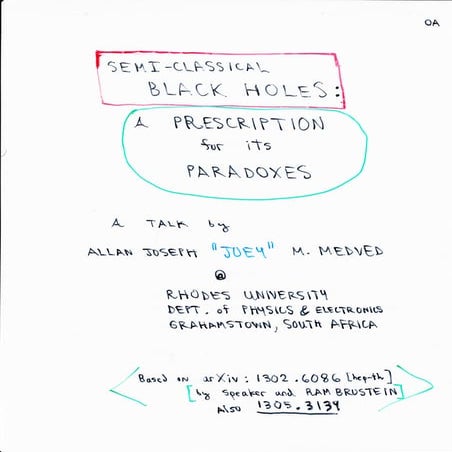 OA
SEMI-CLASSICAL
BLACK HOLES:
A PRESCRIPTION
for its
PARADOXES
A TALK by
ALLAN JOSEPH "JOEY" M. MEDVED
@
RHODES UNIVERSITY
DEPT. of PHYSICS & ELECTRONICS
GRAHAMSTOWN, SOUTH AFRICA
Based on arXiv: 1302.6086 [hep-th]
[by speaker and RAM BRUSTEIN]
Also 1305.3139